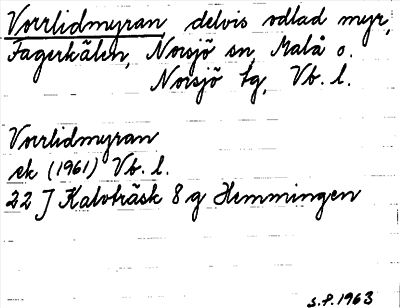 Vorrlidmyran, delvis odlad myr,
Fagerkälen, Norsjö sn, Malå o.
Norsjö tg, Vb. l.
Vorrlidmyran
ek (1961) Vb. l.
22 J Kalvträsk 8 g Hemmingen
S.P. 1963